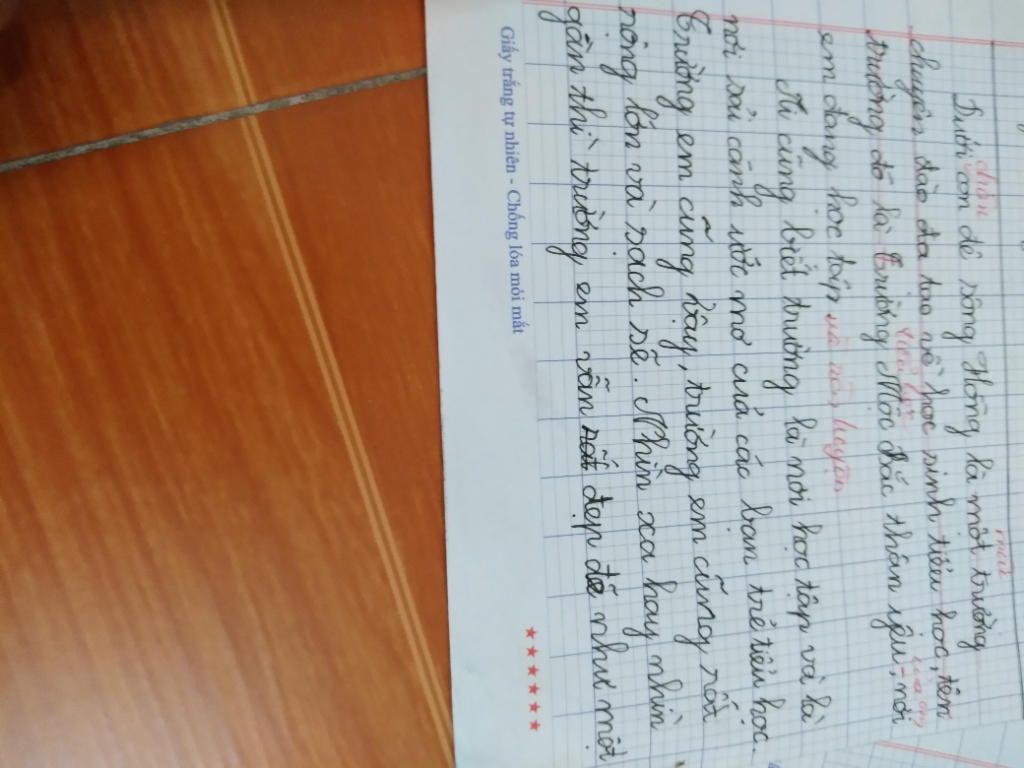 chân
Dưới con đê sông Hồng là một trường
mẫu
chuyên đào đạ tạo về học sinh tiểu học, tên
trường đó là trường Mộc Đắc thân yêu, nơi
em đang học tập và rèn luyện
Ai cũng biết trường là nơi học tập và là
nơi sải cánh ước mơ của các bạn trẻ tiểu học.
Trường em cũng vậy, trường em cũng rất
rộng lớn và sạch sẽ. Nhìn xa hay nhìn
gần thì trường em vẫn đẹp như một
Giấy trắng tự nhiên - Chống lóa mỏi mắt